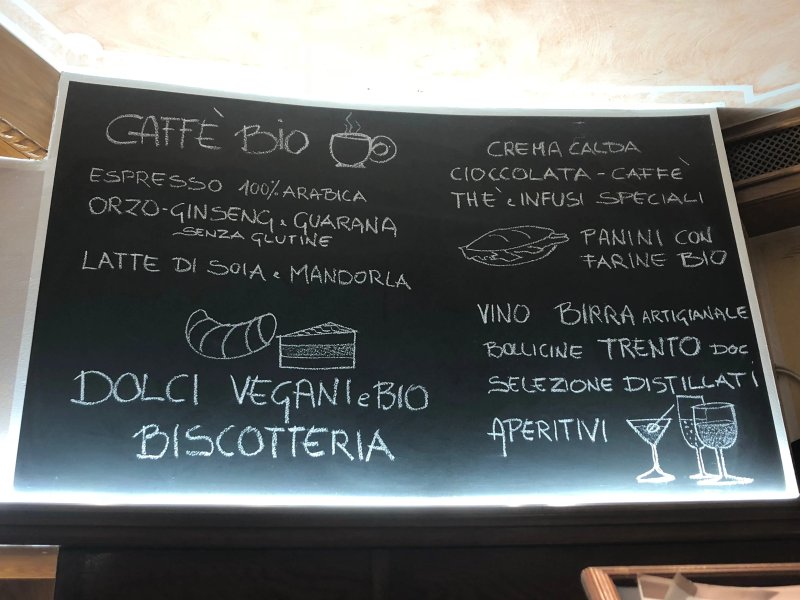 CAFFÈ BIO
ESPRESSO 100% ARABICA
ORZO-GINSENG e GUARANA
SENZA GLUTINE
LATTE DI SOIA e MANDORLA
DOLCI VEGANI e BIO
BISCOTTERIA
CREMA CALDA
CIOCCOLATA - CAFFE'
THE' e INFUSI SPECIALI
PANINI CON
FARINE BIO
VINO BIRRA ARTIGIANALE
BOLLICINE TRENTO DOC
SELEZIONE DISTILLATI
APERITIVI